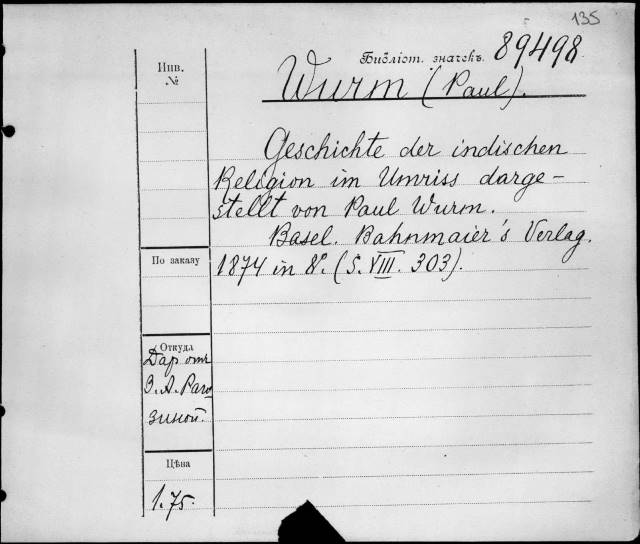 135
Библіот. значекъ. 89498
Инв.
№
Wurm (Paul).
Geschichte der indischen
Religion im Umriss darge-
stellt von Paul Wurm.
Basel. Bahnmaier's Verlag.
1874 in 8°. (S. VIII. 303).
По заказу
Откуда
Даръ отъ
З. А. Раго
зиной.
Цѣна
1.75.